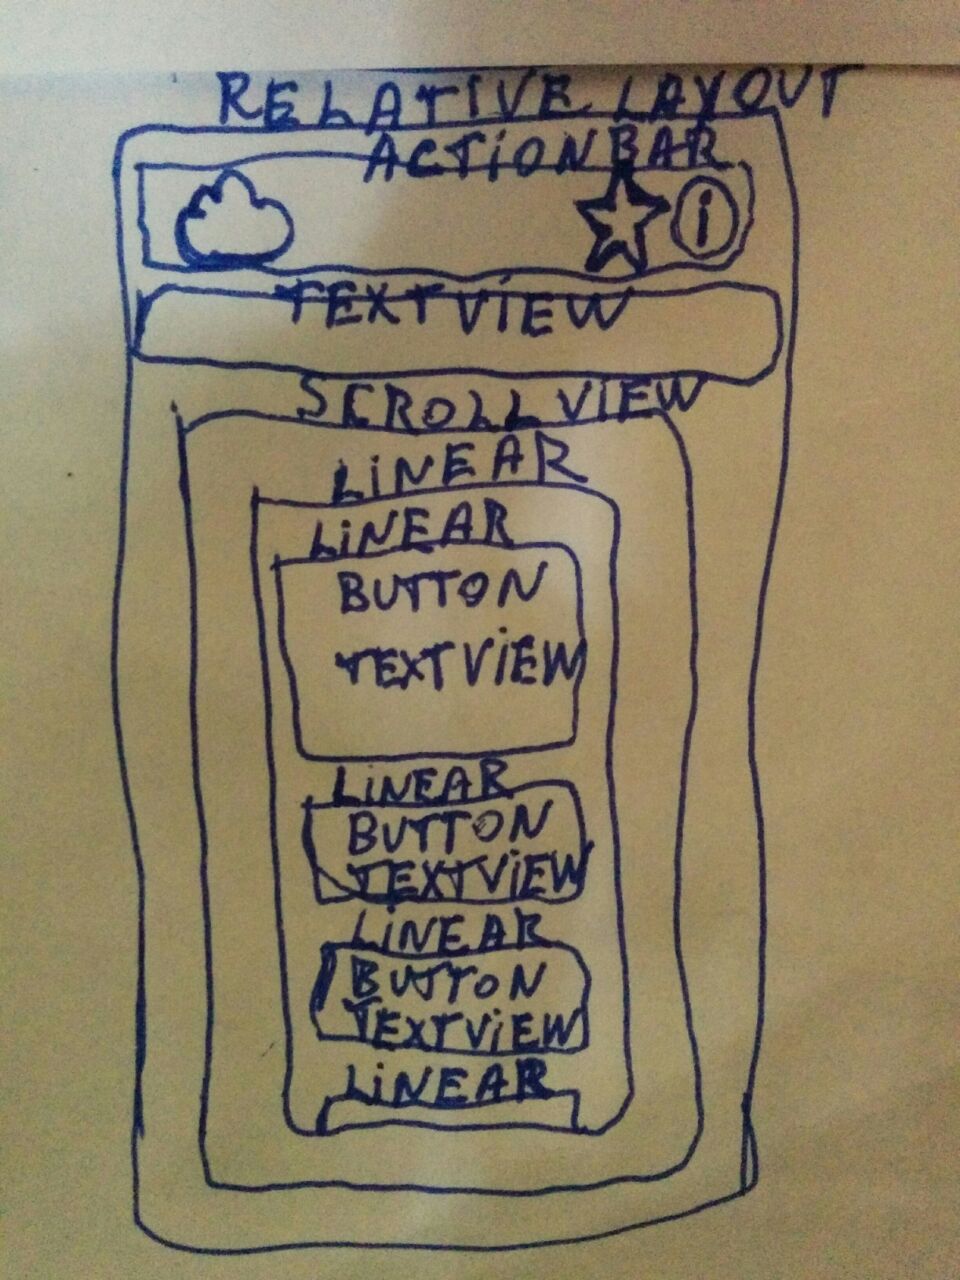 RELATIVE LAYOUT
ACTIONBAR
i
TEXTVIEW
SCROLLVIEW
LiNEAR
LiNEAR
BUTTON
TEXTVIEW
LiNEAR
BUTTON
TEXTVIEW
LiNEAR
BUTTON
TEXTVIEW
LiNEAR